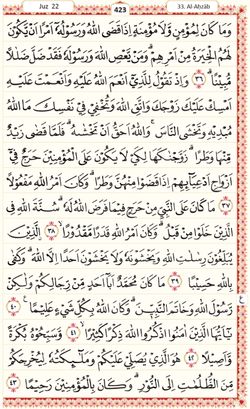 Juz 22
423
33. Al-Aḥzāb
وَمَا كَانَ لِمُؤْمِنٍ وَّلَا مُؤْمِنَةٍ اِذَا قَضَى اللّٰهُ وَرَسُوْلُهٗٓ اَمْرًا اَنْ يَّكُوْنَ
لَهُمُ الْخِيَرَةُ مِنْ اَمْرِهِمْ ۗ وَمَنْ يَّعْصِ اللّٰهَ وَرَسُوْلَهٗ فَقَدْ ضَلَّ ضَلٰلًا
مُّبِيْنًا ۝٣٦ وَاِذْ تَقُوْلُ لِلَّذِيْٓ اَنْعَمَ اللّٰهُ عَلَيْهِ وَاَنْعَمْتَ عَلَيْهِ
اَمْسِكْ عَلَيْكَ زَوْجَكَ وَاتَّقِ اللّٰهَ وَتُخْفِيْ فِيْ نَفْسِكَ مَا اللّٰهُ
مُبْدِيْهِ وَتَخْشَى النَّاسَ ۚ وَاللّٰهُ اَحَقُّ اَنْ تَخْشٰىهُ ۗ فَلَمَّا قَضٰى زَيْدٌ
مِّنْهَا وَطَرًا ۗ زَوَّجْنٰكَهَا لِكَيْ لَا يَكُوْنَ عَلَى الْمُؤْمِنِيْنَ حَرَجٌ فِيْٓ
اَزْوَاجِ اَدْعِيَاۤىِٕهِمْ اِذَا قَضَوْا مِنْهُنَّ وَطَرًا ۗ وَكَانَ اَمْرُ اللّٰهِ مَفْعُوْلًا
۝٣٧ مَا كَانَ عَلَى النَّبِيِّ مِنْ حَرَجٍ فِيْمَا فَرَضَ اللّٰهُ لَهٗ ۗ سُنَّةَ اللّٰهِ فِى
الَّذِيْنَ خَلَوْا مِنْ قَبْلُ ۗ وَكَانَ اَمْرُ اللّٰهِ قَدَرًا مَّقْدُوْرًا ۝٣٨ ۙالَّذِيْنَ
يُبَلِّغُوْنَ رِسٰلٰتِ اللّٰهِ وَيَخْشَوْنَهٗ وَلَا يَخْشَوْنَ اَحَدًا اِلَّا اللّٰهَ ۗ وَكَفٰى
بِاللّٰهِ حَسِيْبًا ۝٣٩ مَا كَانَ مُحَمَّدٌ اَبَآ اَحَدٍ مِّنْ رِّجَالِكُمْ وَلٰكِنْ
رَّسُوْلَ اللّٰهِ وَخَاتَمَ النَّبِيّٖنَ ۗ وَكَانَ اللّٰهُ بِكُلِّ شَيْءٍ عَلِيْمًا ۝٤٠
يٰٓاَيُّهَا الَّذِيْنَ اٰمَنُوا اذْكُرُوا اللّٰهَ ذِكْرًا كَثِيْرًا ۝٤١ وَسَبِّحُوْهُ بُكْرَةً
وَّاَصِيْلًا ۝٤٢ هُوَ الَّذِيْ يُصَلِّيْ عَلَيْكُمْ وَمَلٰۤىِٕكَتُهٗ لِيُخْرِجَكُمْ
مِّنَ الظُّلُمٰتِ اِلَى النُّوْرِ ۗ وَكَانَ بِالْمُؤْمِنِيْنَ رَحِيْمًا ۝٤٣